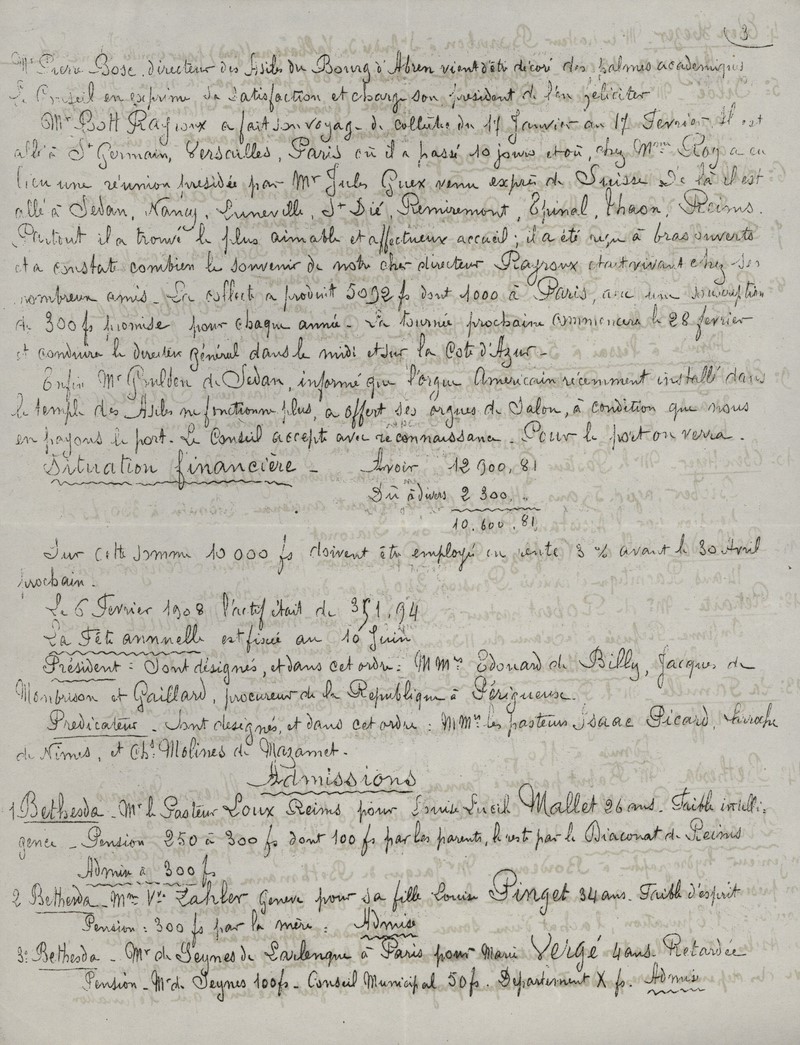 3
Mr Pierre Bose, directeur des Asiles du Bourg d'Abren vient d'être décoré des palmes academiques
Le Conseil en exprime sa satisfaction et charge son president de l'en feliciter
Mr Rayroux a fait son voyage de collecte du 17 Janvier au 17 Fevrier. Il est
allé à St Germain, Versailles, Paris où il a passé 10 jours et où, chez Mme Roy a eu
lieu une réunion presidée par Mr Jules Guex venu exprès de Suisse. De là il est
allé à Sedan, Nancy, Luneville, St Dié, Remiremont, Epinal, Thaon, Reims.
Partout il a trouvé le plus aimable et affectueux accueil; il a été reçu à bras ouverts
et a constaté combien le souvenir de notre cher directeur Rayroux etait vivant chez ses
nombreux amis. La collecte a produit 5092 fs dont 1000 à Paris, avec une souscription
de 300 fs promise pour chaque année. La tournée prochaine commencera le 28 fevrier
et conduira le directeur général dans le midi et sur la Cote d'Azur.
Enfin Mr Gulden de Sedan, informé que l'orgue Americain récemment installé dans
le temple des Asiles ne fonctionne plus, a offert ses orgues de Salon, à condition que nous
en payons le port. Le Conseil accepte avec reconnaissance. Pour le port on verra.
Situation financière - Avoir 12 900,81
Dû à divers 2 300, "
10.600,81
Sur cette somme 10 000 fs doivent être employés en rente 3 % avant le 30 Avril
prochain.
Le 6 Fevrier 1908 l'actif était de 351,94
La Fête annuelle est fixée au 10 Juin
Président : Sont désignés, et dans cet ordre : MMrs Edouard de Billy, Jacques de
Monbrison et Gaillard, procureur de la Republique à Périgueux.
Predicateur. Sont designés, et dans cet ordre : MMrs les pasteurs Isaac Picard,
de Nîmes, et Chs Molines de Mazamet.
Admissions
1 Bethesda - Mr le Pasteur Loux Reims pour Louise Lucile Mallet 26 ans. Faible intelli-
gence - Pension 250 à 300 fs dont 100 fs par les parents, le reste par le Diaconat de Reims
Admise à 300 fs
2 Bethesda - Mme Vve Zahler Geneve pour sa fille Louise Pinget 34 ans. Faible d'esprit
Pension : 300 fs par la mère : Admise
3: Bethesda - Mr de Seynes de Larlenque à Paris pour Marie Vergé 4 ans. Retardée
Pension - Mr de Seynes 100 fs - Conseil Municipal 50 fs. Departement X fs. Admise